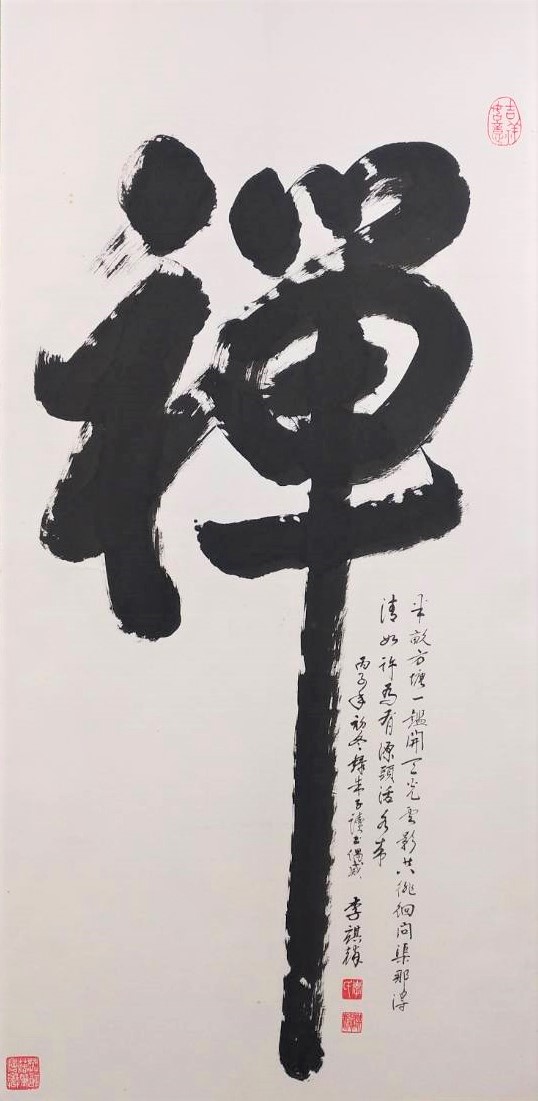 吉祥如意
禪
半畝方塘一鑑開天光雲影共徘徊問渠那得
清如許為有源頭活水来
丙子年初冬錄朱子讀書偶感
李祺